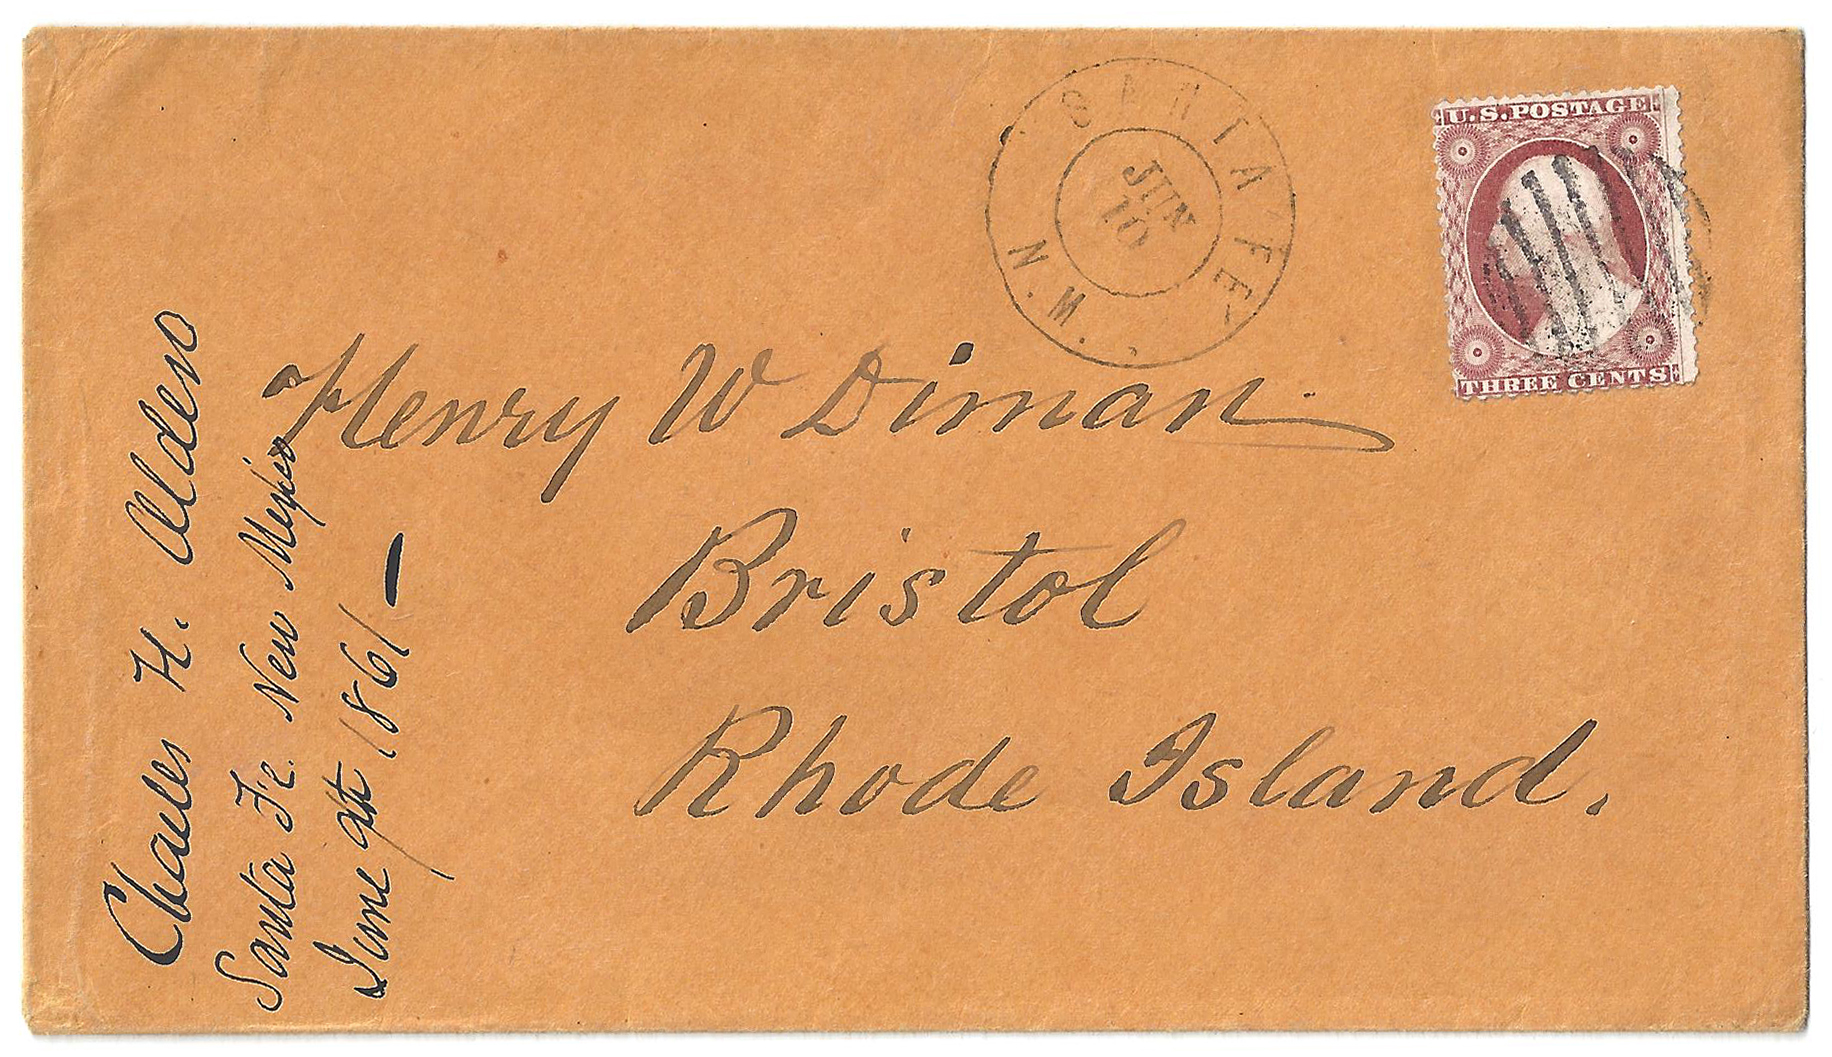 SANTA FE
N.M.
JUN
10
U.S. POSTAGE
THREE CENTS
Henry W Diman
Bristol
Rhode Island.
Charles H. Alden
Santa Fe. New Mexico
June 9th 1861 —